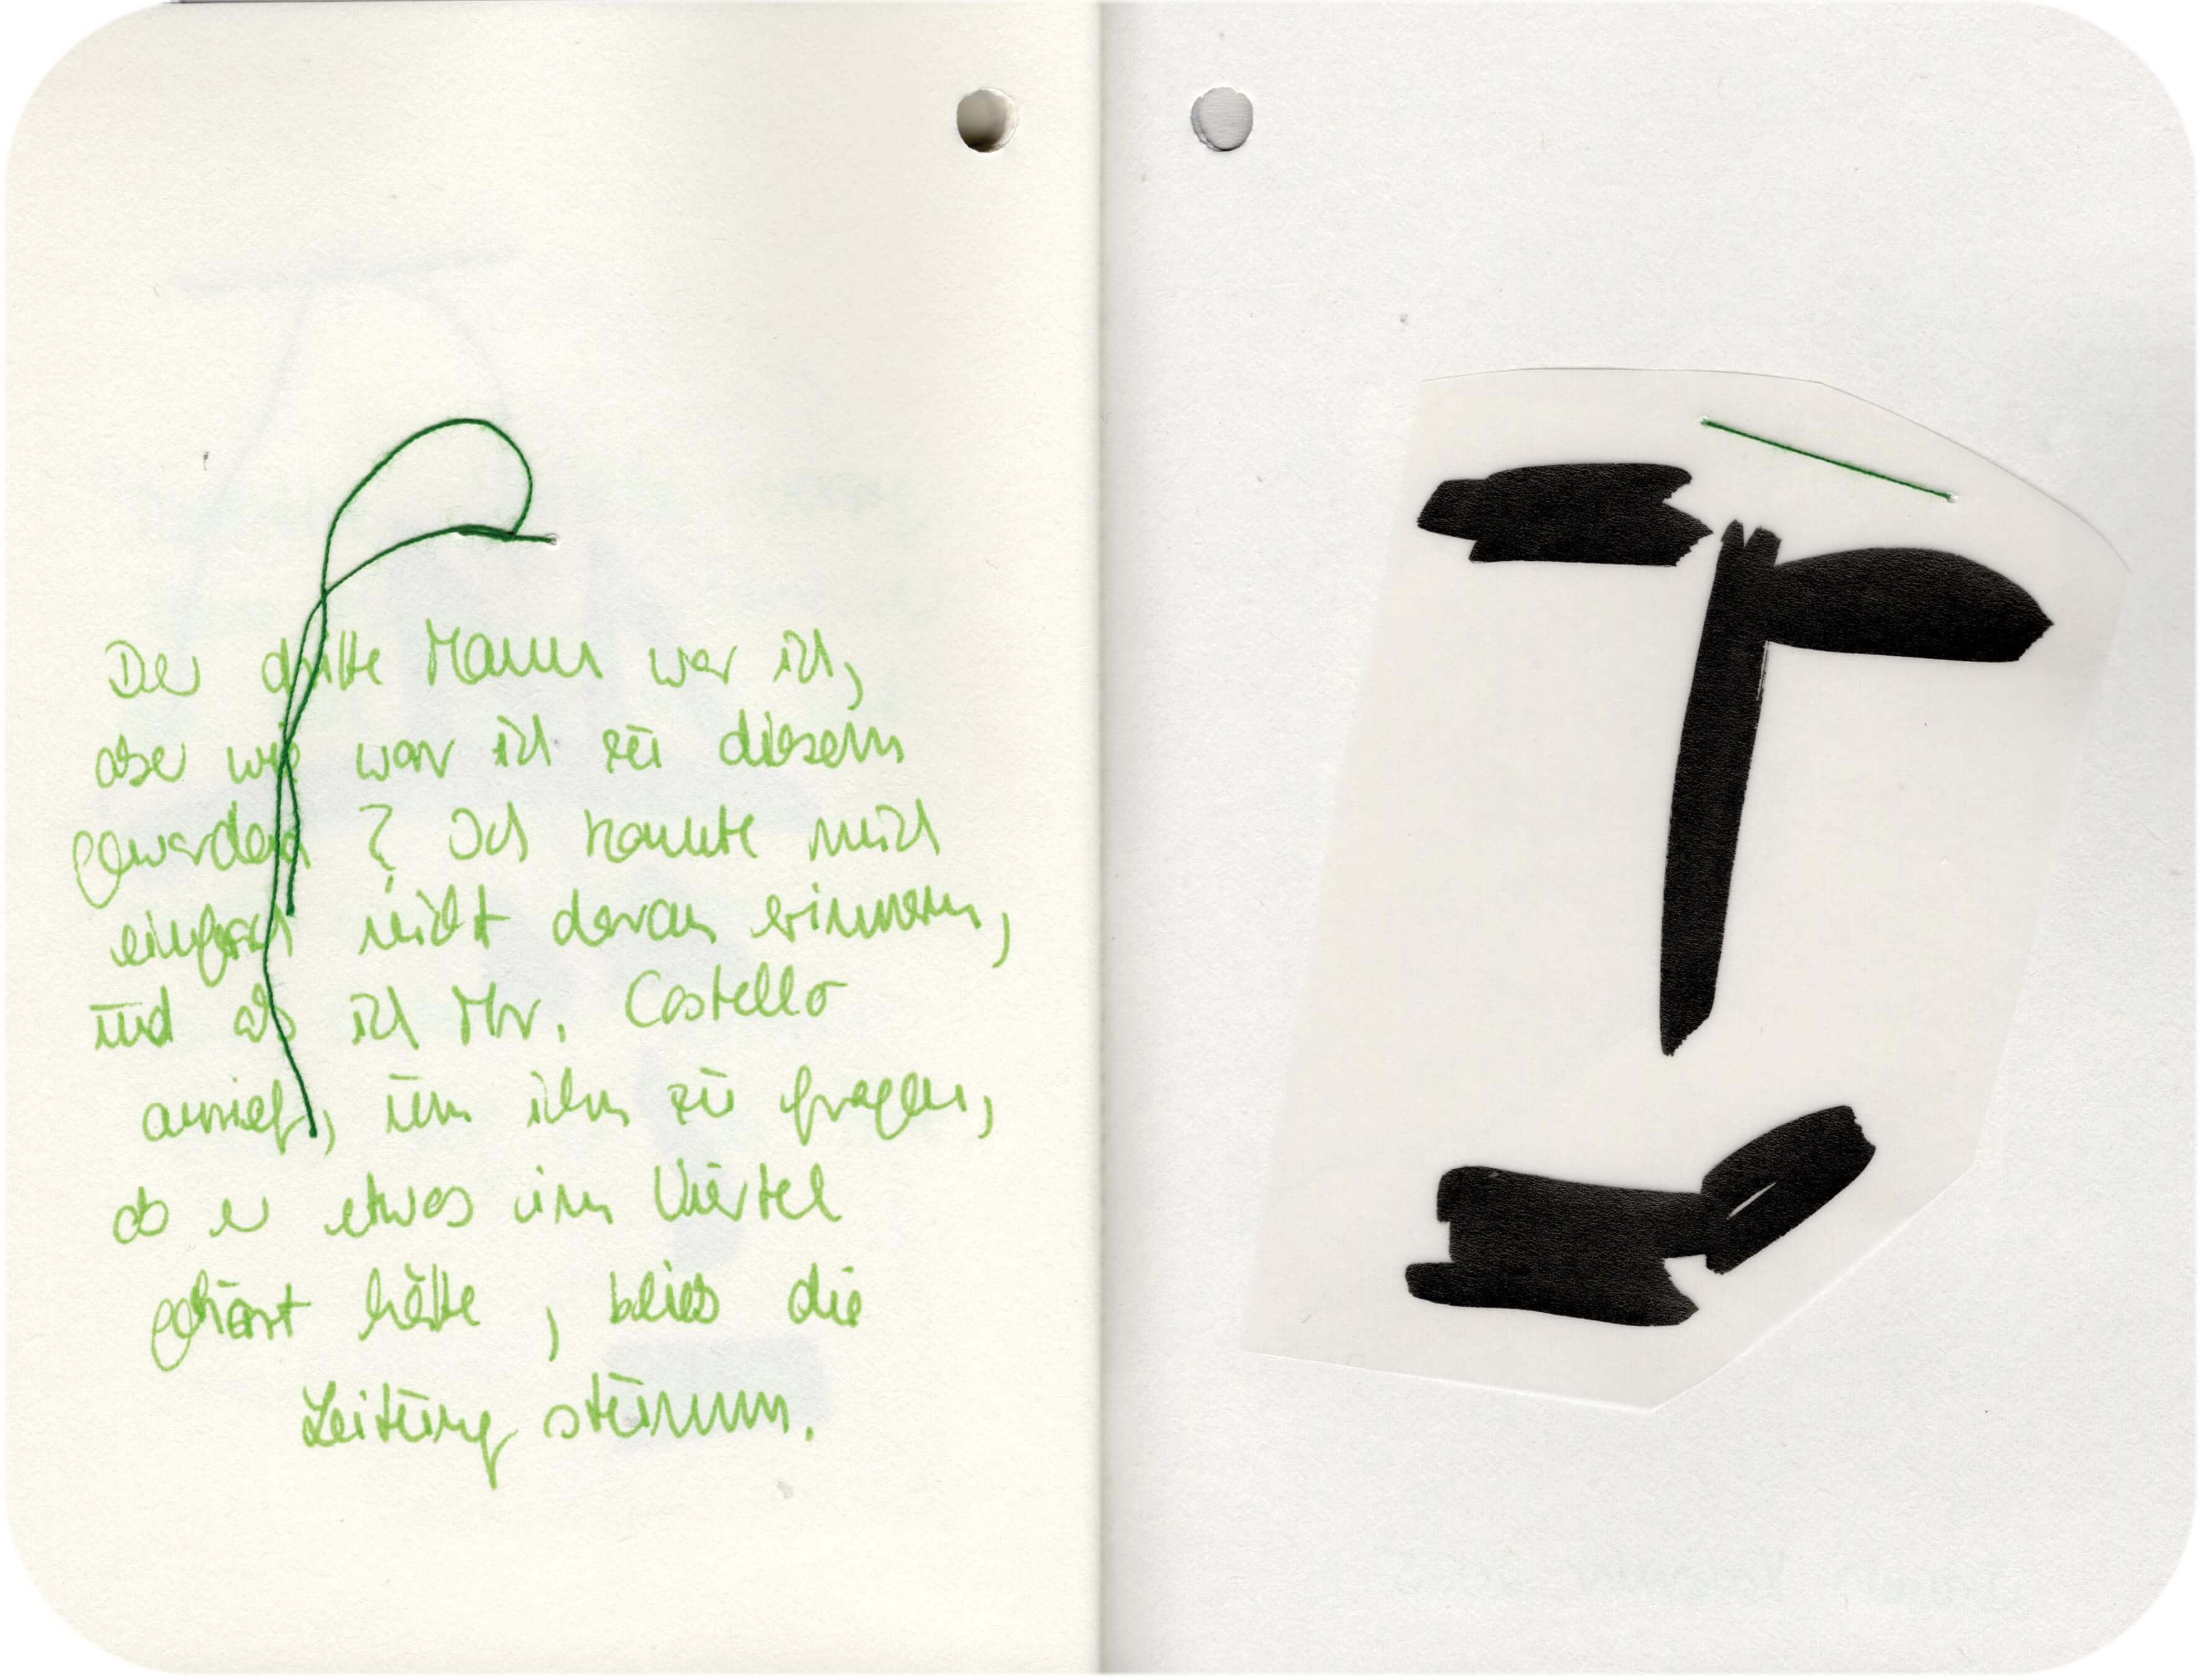 Der dritte Mann war ich,
aber wie war ich zu diesem
geworden ? Ich konnte mich
einfach nicht daran erinnern,
und als ich Mr. Costello
anrief, um ihn zu fragen,
ob er etwas im Viertel
gehört hätte, blieb die
Leitung stumm.